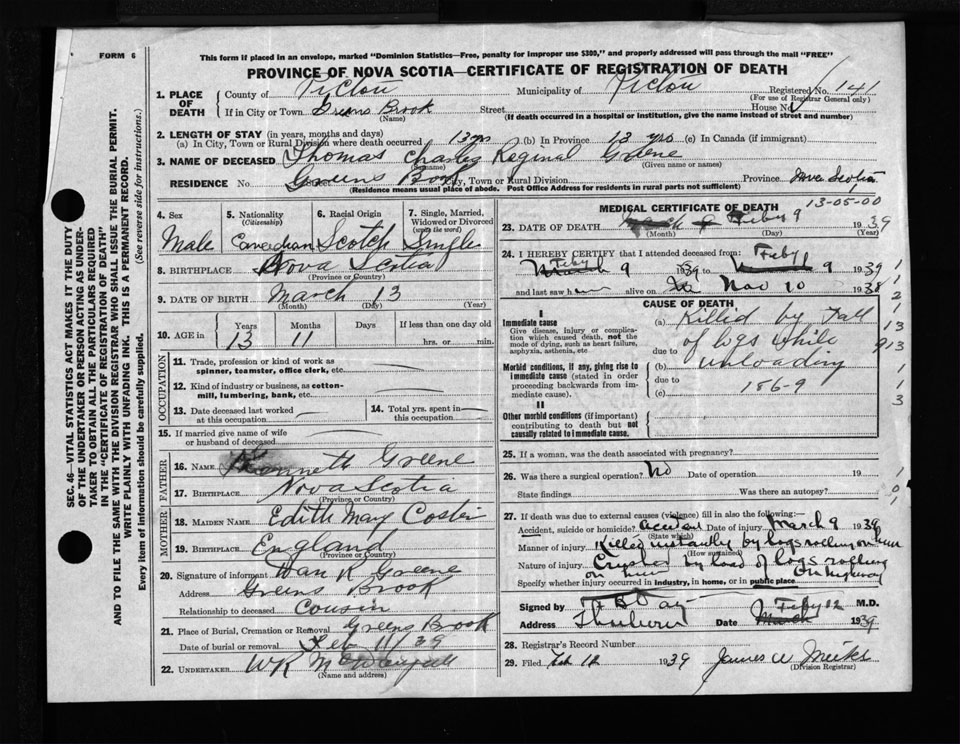 FORM 6
This form if placed in an envelope, marked "Dominion Statistics—Free, penalty for improper use $300," and properly addressed will pass through the mail "FREE"
PROVINCE OF NOVA SCOTIA—CERTIFICATE OF REGISTRATION OF DEATH
SEC. 46—VITAL STATISTICS ACT MAKES IT THE DUTY
OF THE UNDERTAKER OR PERSON ACTING AS UNDER-
TAKER TO OBTAIN ALL THE PARTICULARS REQUIRED
IN THE "CERTIFICATE OF REGISTRATION OF DEATH"
AND TO FILE THE SAME WITH THE DIVISION REGISTRAR WHO SHALL ISSUE THE BURIAL PERMIT.
WRITE PLAINLY WITH UNFADING INK. THIS IS A PERMANENT RECORD.
Every item of information should be carefully supplied. (See reverse side for instructions.)
1. PLACE OF DEATH County of Pictou Municipality of Pictou Registered No. 141
(For use of Registrar General only)
If in City or Town Greens Brook Street House No.
(Name) (If death occurred in a hospital or institution, give the name instead of street and number)
2. LENGTH OF STAY (in years, months and days)
(a) In City, Town or Rural Division where death occurred 13 yrs (b) In Province 13 yrs (c) In Canada (if immigrant)
3. NAME OF DECEASED Thomas Charles Reginal Greene
(Surname) (Given name or names)
RESIDENCE No. Greens Brook City, Town or Rural Division Province Nova Scotia
(Residence means usual place of abode. Post Office Address for residents in rural parts not sufficient)
4. Sex 5. Nationality (Citizenship) 6. Racial Origin 7. Single, Married, Widowed or Divorced (write the word)
Male Canadian Scotch Single
8. BIRTHPLACE Nova Scotia
(Province or Country)
9. DATE OF BIRTH March 13
(Month) (Day) (Year)
10. AGE in Years Months Days If less than one day old
13 11 hrs. or min.
OCCUPATION
11. Trade, profession or kind of work as spinner, teamster, office clerk, etc.
12. Kind of industry or business, as cotton-mill, lumbering, bank, etc.
13. Date deceased last worked at this occupation 14. Total yrs. spent in this occupation
15. If married give name of wife or husband of deceased
FATHER
16. NAME Kenneth Greene
17. BIRTHPLACE Nova Scotia
(Province or Country)
MOTHER
18. MAIDEN NAME Edith May
19. BIRTHPLACE England
(Province or Country)
20. Signature of informant Dan R Greene
Address Greens Brook
Relationship to deceased Cousin
21. Place of Burial, Cremation or Removal Greens Brook
Date of burial or removal Feb 11/39
22. UNDERTAKER WR
(Name and address)
MEDICAL CERTIFICATE OF DEATH 13-05-00
23. DATE OF DEATH Feby 9 1939
(Month) (Day) (Year)
24. I HEREBY CERTIFY that I attended deceased from:
Feby March 9 1939 to March Feby 9 1939
and last saw h alive on Nov 10 1938
CAUSE OF DEATH
I
Immediate cause
Give disease, injury or complication which caused death, not the mode of dying, such as heart failure, asphyxia, asthenia, etc
Morbid conditions, if any, giving rise to immediate cause (stated in order proceeding backwards from immediate cause).
II
Other morbid conditions (if important) contributing to death but not causally related to immediate cause.
(a) Killed by Fall
due to of logs while
(b) unloading
due to 186-9
(c)
1
2
1
13
913
1
1
3
25. If a woman, was the death associated with pregnancy?
26. Was there a surgical operation? No Date of operation 19
State findings Was there an autopsy?
1
0
1
27. If death was due to external causes (violence) fill in also the following:—
Accident, suicide or homicide? accident Date of injury March 9 1939
(State which)
Manner of injury Killed instantly by logs rolling on him
(How sustained)
Nature of injury Crushed by load of logs rolling
on him On highway
Specify whether injury occurred in industry, in home, or in public place
Signed by F B Day M.D.
Address Thorburn Date March Feby 12 1939
28. Registrar's Record Number
29. Filed Feb 12 1939 James W Meikle
(Division Registrar)